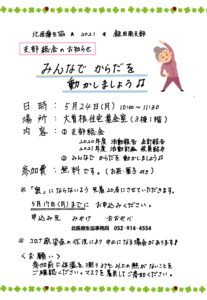 北医療生協 ☆ 2021 ☆ 飯田南支部
支部総会のお知らせ
みんなで からだを
動かしましょう♫
日時：5月24日(月) 10:00〜11:30
場所：大曽根住宅集会室(3棟1階)
内容：①支部総会
2020年度 活動報告 会計報告
2021年度 活動計画 役員紹介
② みんなで からだを 動かしましょう♫
参加費：無料です。(お茶・菓子付)
◎「密」にならないよう 先着20名にさせていただきます。
5月17日(月)までに お申込みください。
申込み先
北医療生協事務局 052-914-4554
◎ コロナ感染症の状況により中止になる場合があります！
〈お願い〉
参加前に体温を測り37度以上の熱がないことを
ご確認ください。マスクを着用してご参加ください。